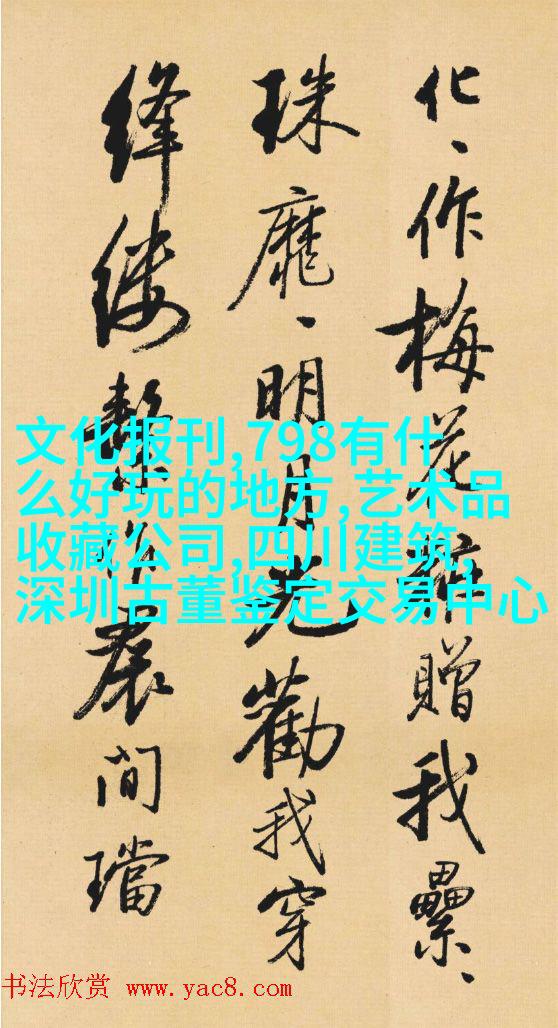 化、作梅花妝贈我纍、
珠靡、明月光勸我穿
絳縷繫作裠間璫
文化报刊,798有什
么好玩的地方,艺术品
收藏公司,四川建筑,
深圳古董鉴定交易中心
书法欣赏 www.yac8.com